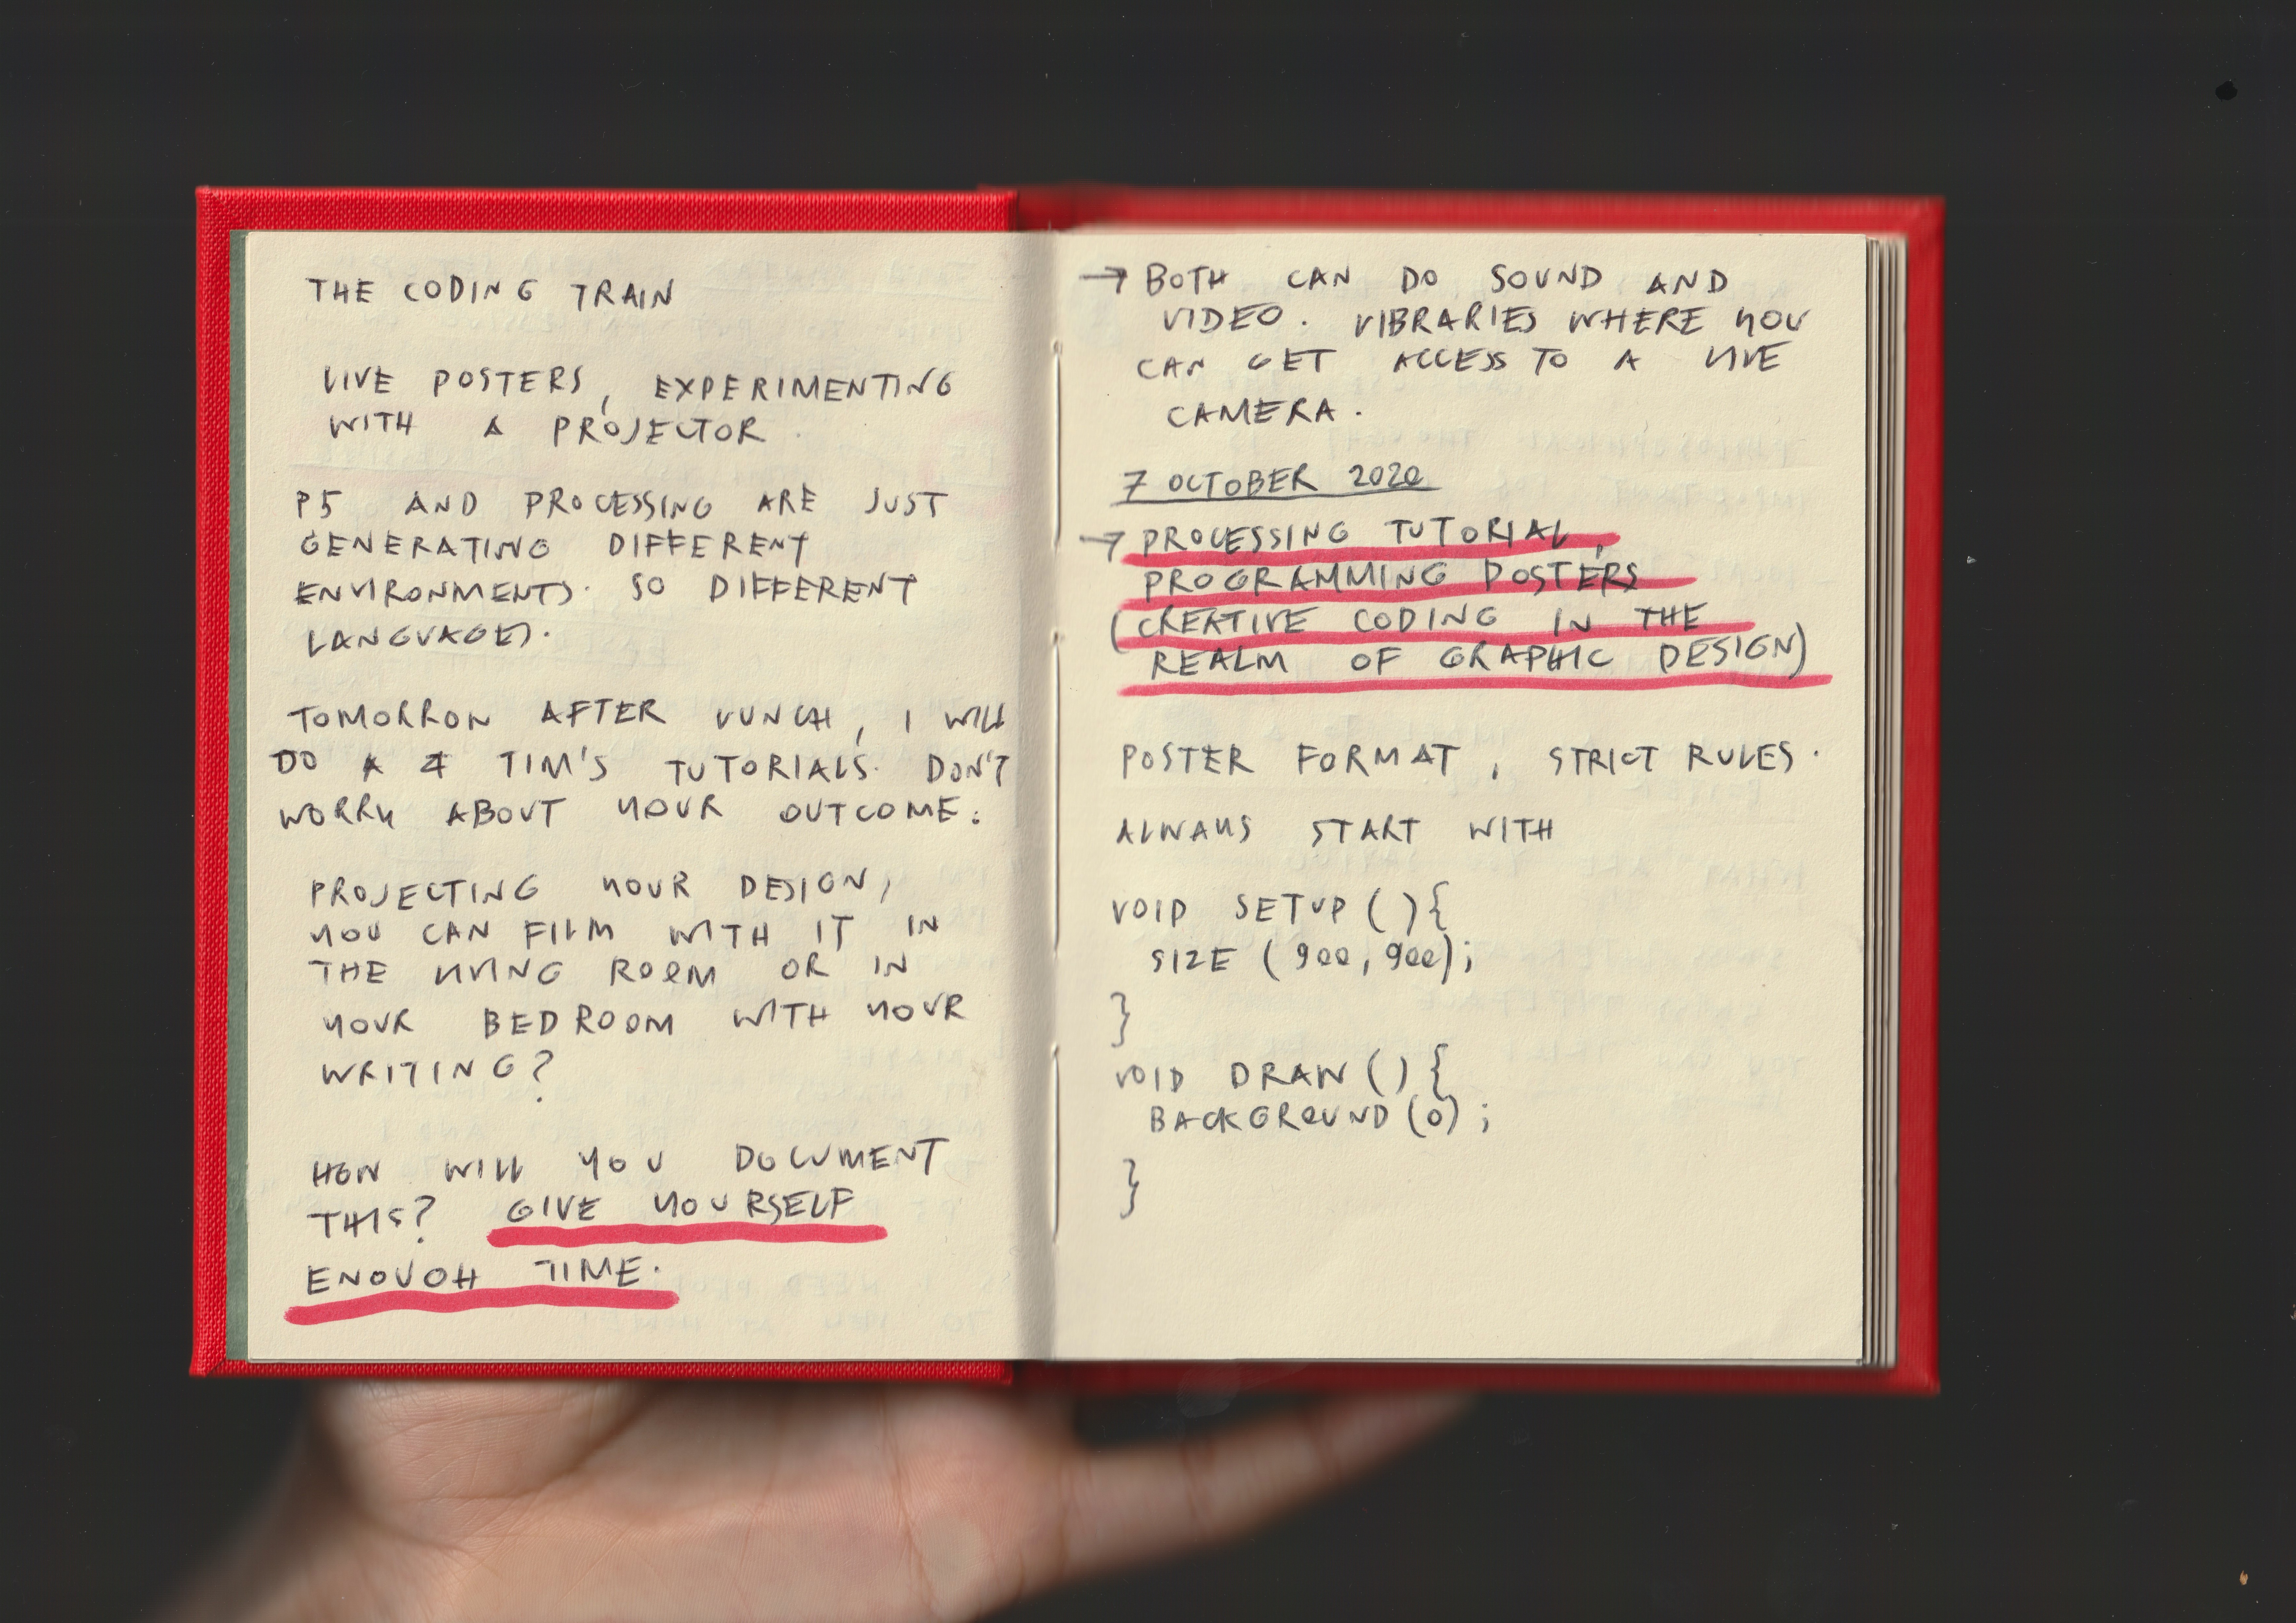 THE CODING TRAIN
LIVE POSTERS, EXPERIMENTING
WITH A PROJECTOR.
P5 AND PROCESSING ARE JUST
GENERATING DIFFERENT
ENVIRONMENTS. SO DIFFERENT
LANGUAGES.
TOMORROW AFTER LUNCH, I WILL
DO TIM'S TUTORIALS. DON'T
WORRY ABOUT YOUR OUTCOME.
PROJECTING YOUR DESIGN,
YOU CAN FILM WITH IT IN
THE LIVING ROOM OR IN
YOUR BEDROOM WITH YOUR
WRITING?
HOW WILL YOU DOCUMENT
THIS? GIVE YOURSELF
ENOUGH TIME.
→ BOTH CAN DO SOUND AND
VIDEO. LIBRARIES WHERE YOU
CAN GET ACCESS TO A LIVE
CAMERA.
7 OCTOBER 2020
→ PROCESSING TUTORIAL,
PROGRAMMING POSTERS
(CREATIVE CODING IN THE
REALM OF GRAPHIC DESIGN)
POSTER FORMAT, STRICT RULES.
ALWAYS START WITH
VOID SETUP (){
SIZE (900, 900);
}
VOID DRAW (){
BACKGROUND (0);
}